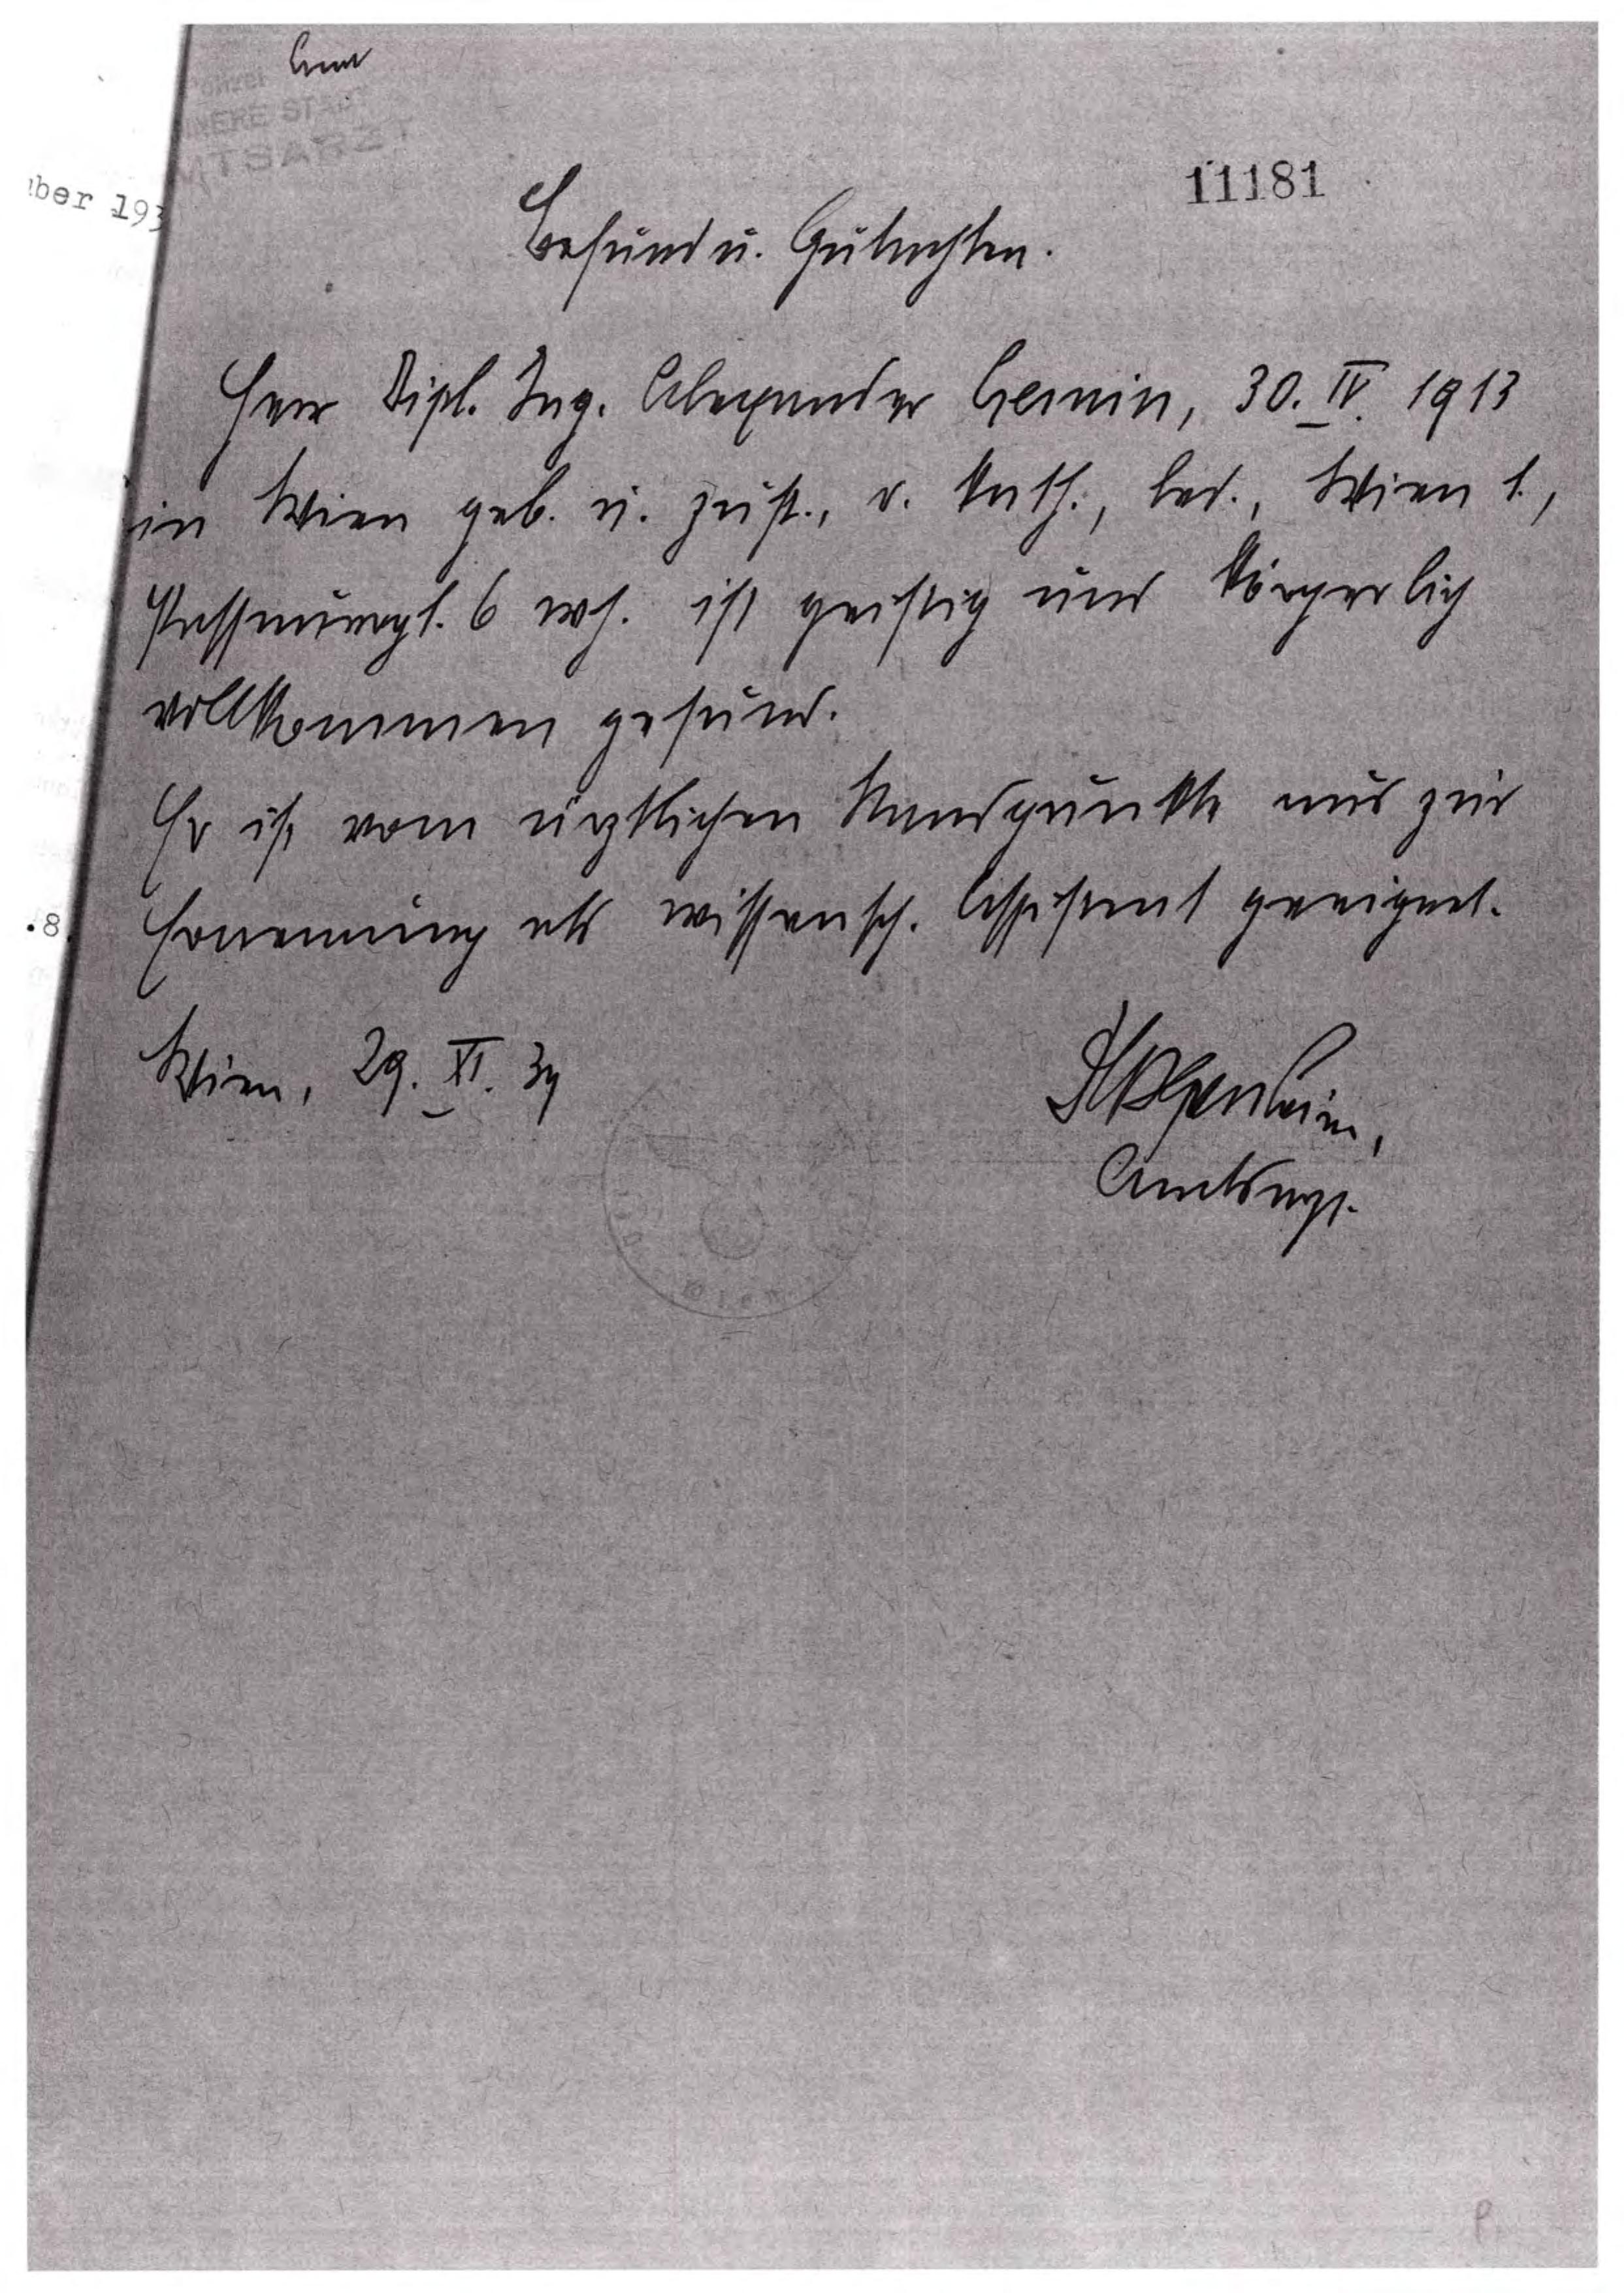 INNERE STADT
AMTSARZT
11181
ber 193
Befund u. Gutachten.
Herr Dipl. Ing. Alexander Gernin, 30. IV. 1913
in Wien geb. u. zust., r. kath., led., Wien 1.,
6 wh. ist geistig und körperlich
vollkommen gesund.
Er ist vom ärztlichen Standpunkte aus zur
.8
Ernennung als wissensch. Assistent geeignet.
Wien, 29. XI. 39
Amtsarzt.
Wien